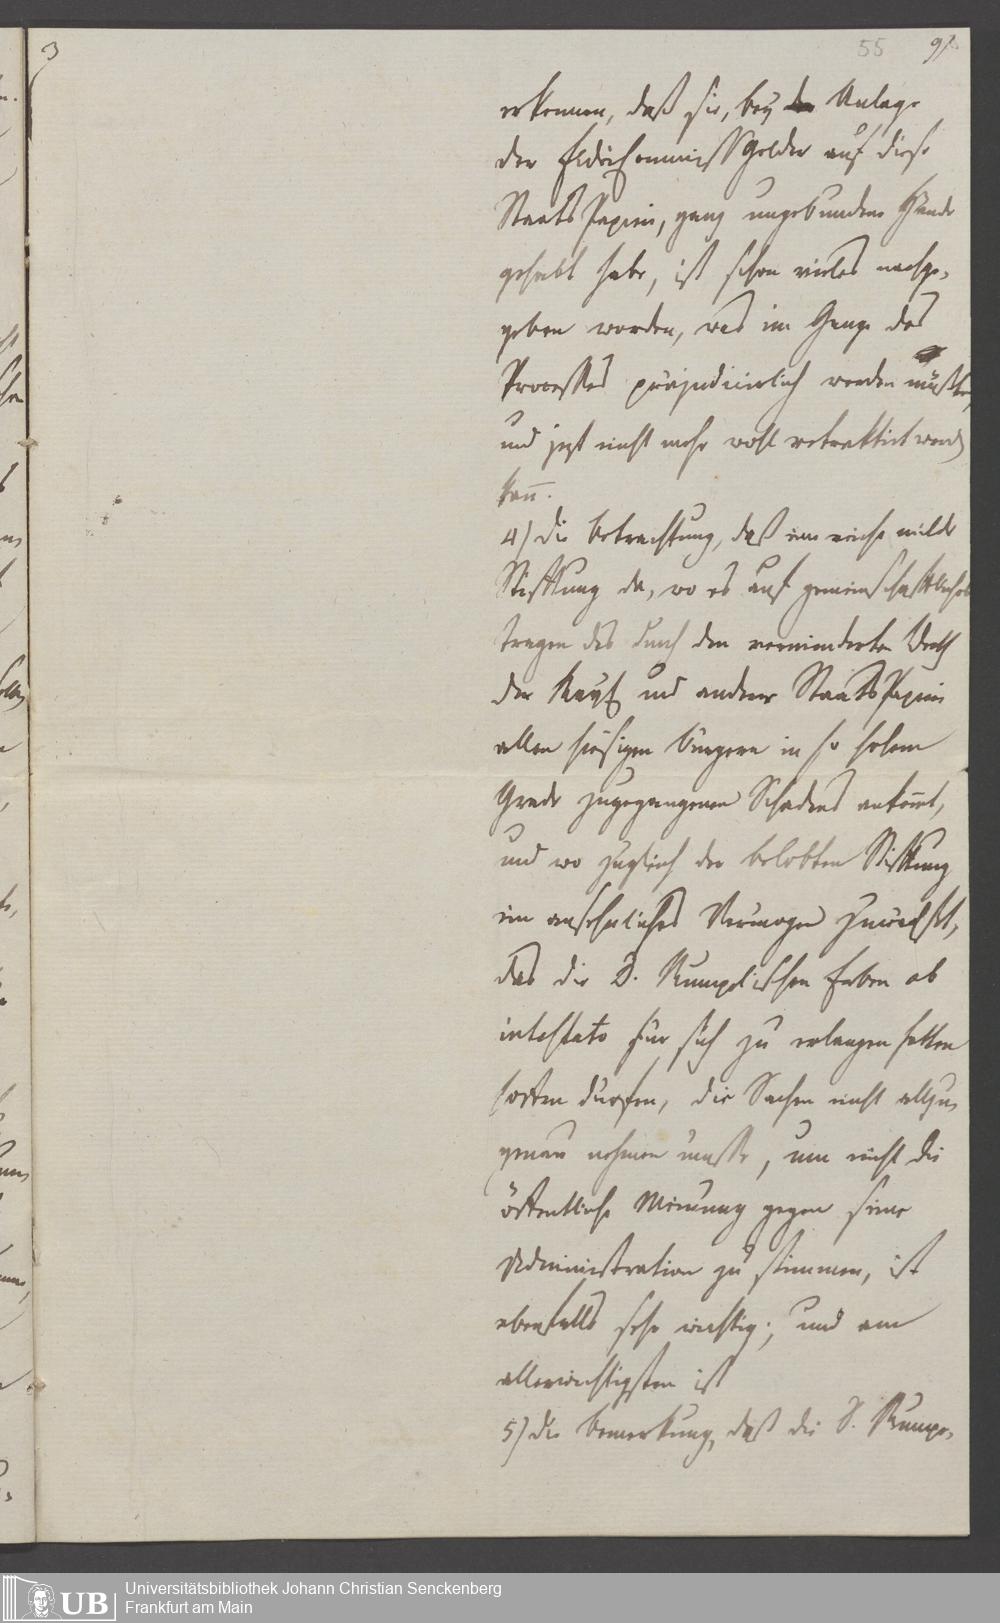 3 55 91
erkennen, daß sie, bey der Anlage
der FideiCommissGelder auf diese
StaatsPapiere, ganz ungebundene Hände
gehabt habe, ist schon vieles nachge-
geben worden, was im Gange des
Processes präjudicirlich werden müßte,
und jezt nicht mehr wohl retraktirt werden
kann̄.
4) die Betrachtung, daß eine reiche milde
Stiftung da, wo es auf gemeinschaftliches
tragen des durch den verminderten Werth
der Kays und anderer StaatsPapiere
allen hiesigen Bürgern in so hohem
Grade zugegangenen Schadens ankom̄t,
und wo zugleich der belobten Stiftung
ein ansehnliches Vermögen zuwächst,
das die D. Rumpelischen Erben ab
intestato für sich zu erlangen hatten
hoffen durfen, die Sachen nicht allzu-
genau nehmen muße, um nicht die
öffentliche Meinung gegen seine
Administration zu stimmen, ist
ebenfalls sehr wichtig; und am
allerwichtigsten ist
5) die Bemerkung, daß die D. Rumpe-
Universitätsbibliothek Johann Christian Senckenberg
Frankfurt am Main
UB